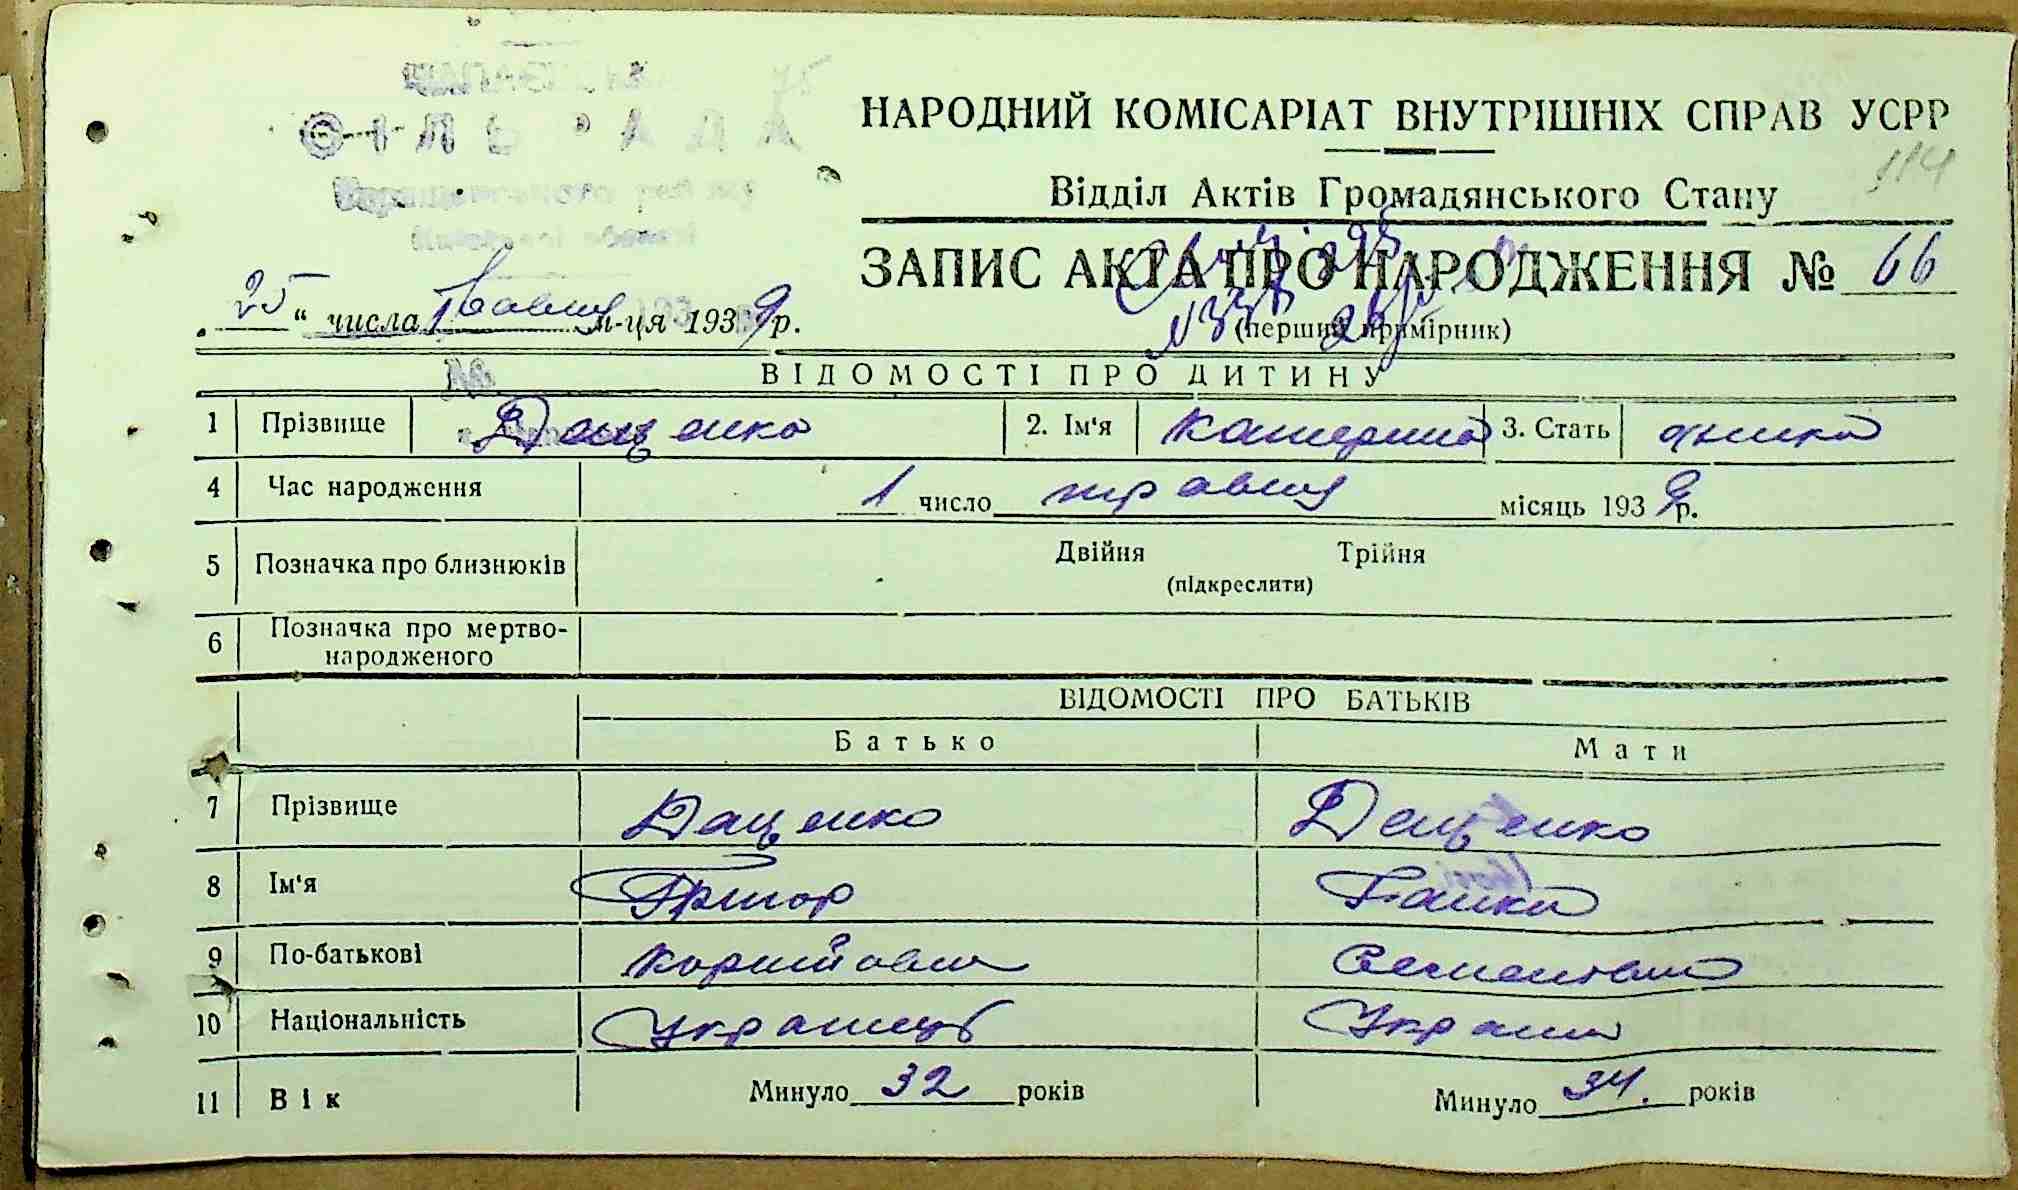 СІЛЬРАДА
НАРОДНИЙ КОМІСАРІАТ ВНУТРІШНІХ СПРАВ УСРР
114
Відділ Актів Громадянського Стану
ЗАПИС АКТА ПРО НАРОДЖЕННЯ № 66
„25“ числа Травня м-ця 1939 р.
(перший примірник)
ВІДОМОСТІ ПРО ДИТИНУ
1 Прізвище Даценко 2. Ім'я Катерина 3. Стать жіноча
4 Час народження 1 число травня місяць 1939 р.
5 Позначка про близнюків Двійня Трійня
(підкреслити)
6 Позначка про мертво-
народженого
ВІДОМОСТІ ПРО БАТЬКІВ
Батько Мати
7 Прізвище Даценко Даценко
8 Ім'я Григор Ганна
9 По-батькові Семеновна
10 Національність Украинець Украин
11 Вік Минуло 32 років Минуло 34. років